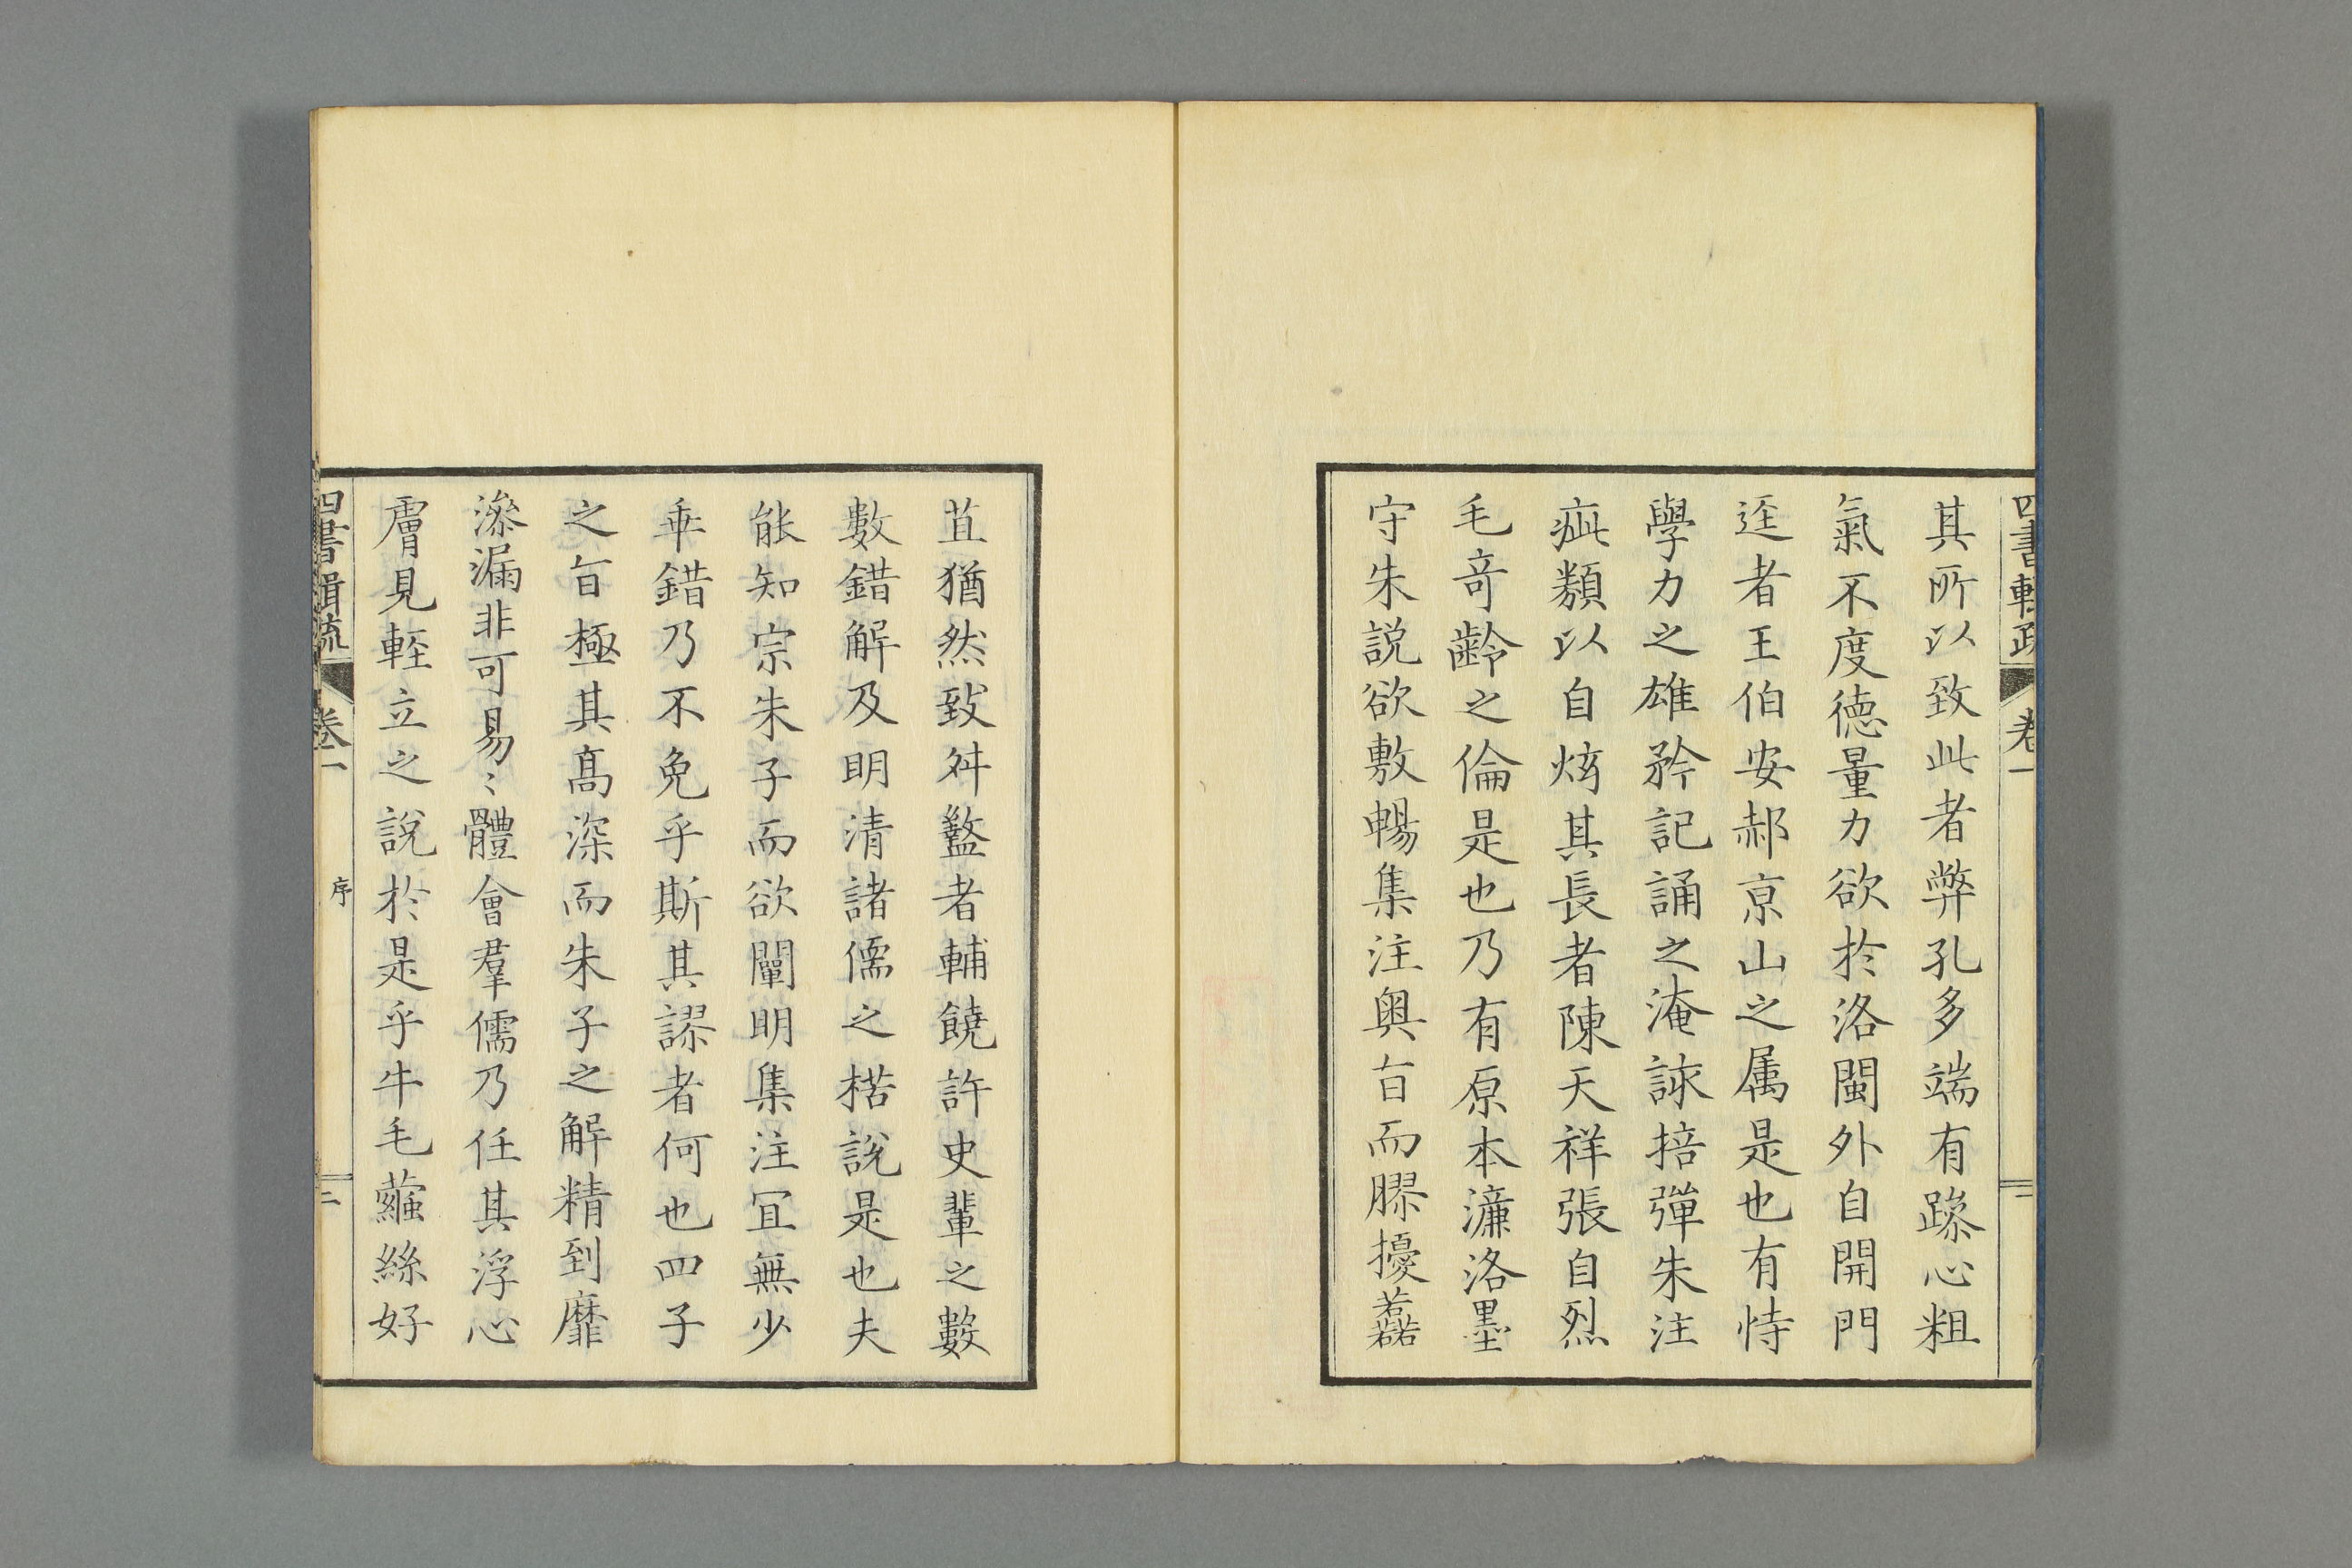 四書輯疏 卷一
其所以致此者弊孔多端有䟃心粗
氣不度德量力欲於洛閩外自開門
逕者王伯安郝京山之属是也有恃
學力之雄矜記誦之淹諒掊彈朱注
疵纇以自炫其長者陳天祥張自烈
毛竒齡之倫是也乃有原本濂洛墨
守朱説欲敷暢集注奥㫖而膠擾蘯
苴猶然致舛盭者輔饒許史輩之數
數錯解及明清諸儒之楛說是也夫
能知宗朱子而欲闡明集注冝無少
乖錯乃不免乎斯其謬者何也四子
之㫖極其髙深而朱子之解精到靡
滲漏非可易〻體會羣儒乃任其浮心
膚見輕立之說於是乎牛毛繭絲好
四書輯疏 卷一 序 二